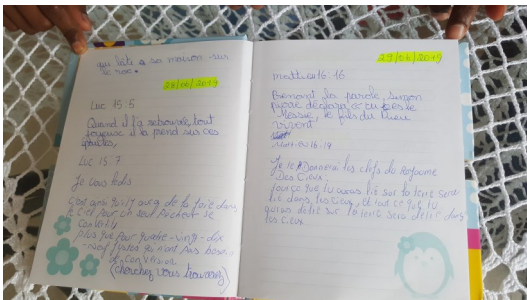 qui bâti sa maison sur
le roc.
28/06/2019
Luc 15:5
Quand il l'a retrouvée, tout
joyeuse il la prend sur ces
épaules,
Luc 15:7
Je vous dis
c'est ainsi qu'il y aura de la joie dans
le ciel pour un seul pécheur se
converti,
plus que pour quatre-vingt-dix
-neuf justes qui n'ont pas besoin
de conversion
(cherchez vous trouverez)
29/06/2019
matthieu 16:16
Prenant la parole, simon
pierre déclara : tu es le
Messie, le fils du Dieu
vivent
16.19
Je te donnerai les clefs de Royaume
Des Cieux,
tout ce que tu auras lié sur la terre sera
lié dans les cieux, et tout ce que tu
auras délié sur la terre sera délié dans
les cieux